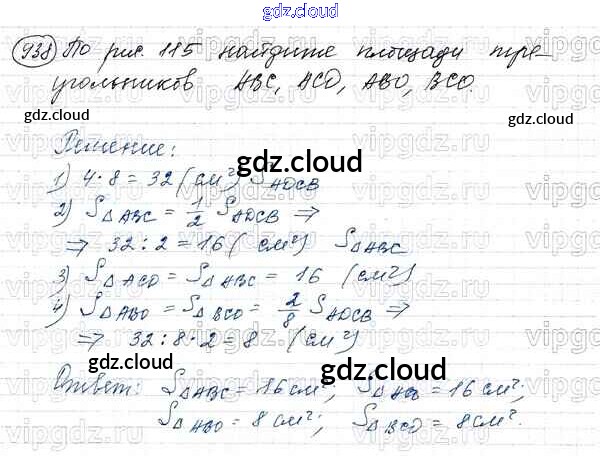 gdz.cloud
938 По рис. 115 найдите площади тре-
угольников ABC, ACD, ABO, BCO.
gdz.cloud
gdz.cloud
Решение:
gdz.cloud
1) 4·8=32 (см²) S ADCB
2) S△ABC = 1/2 S ADCB ⇒
⇒ 32:2=16 (см²) S△ABC
3) S△ACD = S△ABC = 16 (см²)
4) S△ABO = S△BCO = 2/8 S ADCB ⇒
⇒ 32:8·2=8 (см²)
gdz.cloud
gdz.cloud
Ответ: S△ABC = 16 см²; S△ACD = 16 см²;
gdz.cloud
S△ABO = 8 см²; S△BCO = 8 см².
gdz.cloud